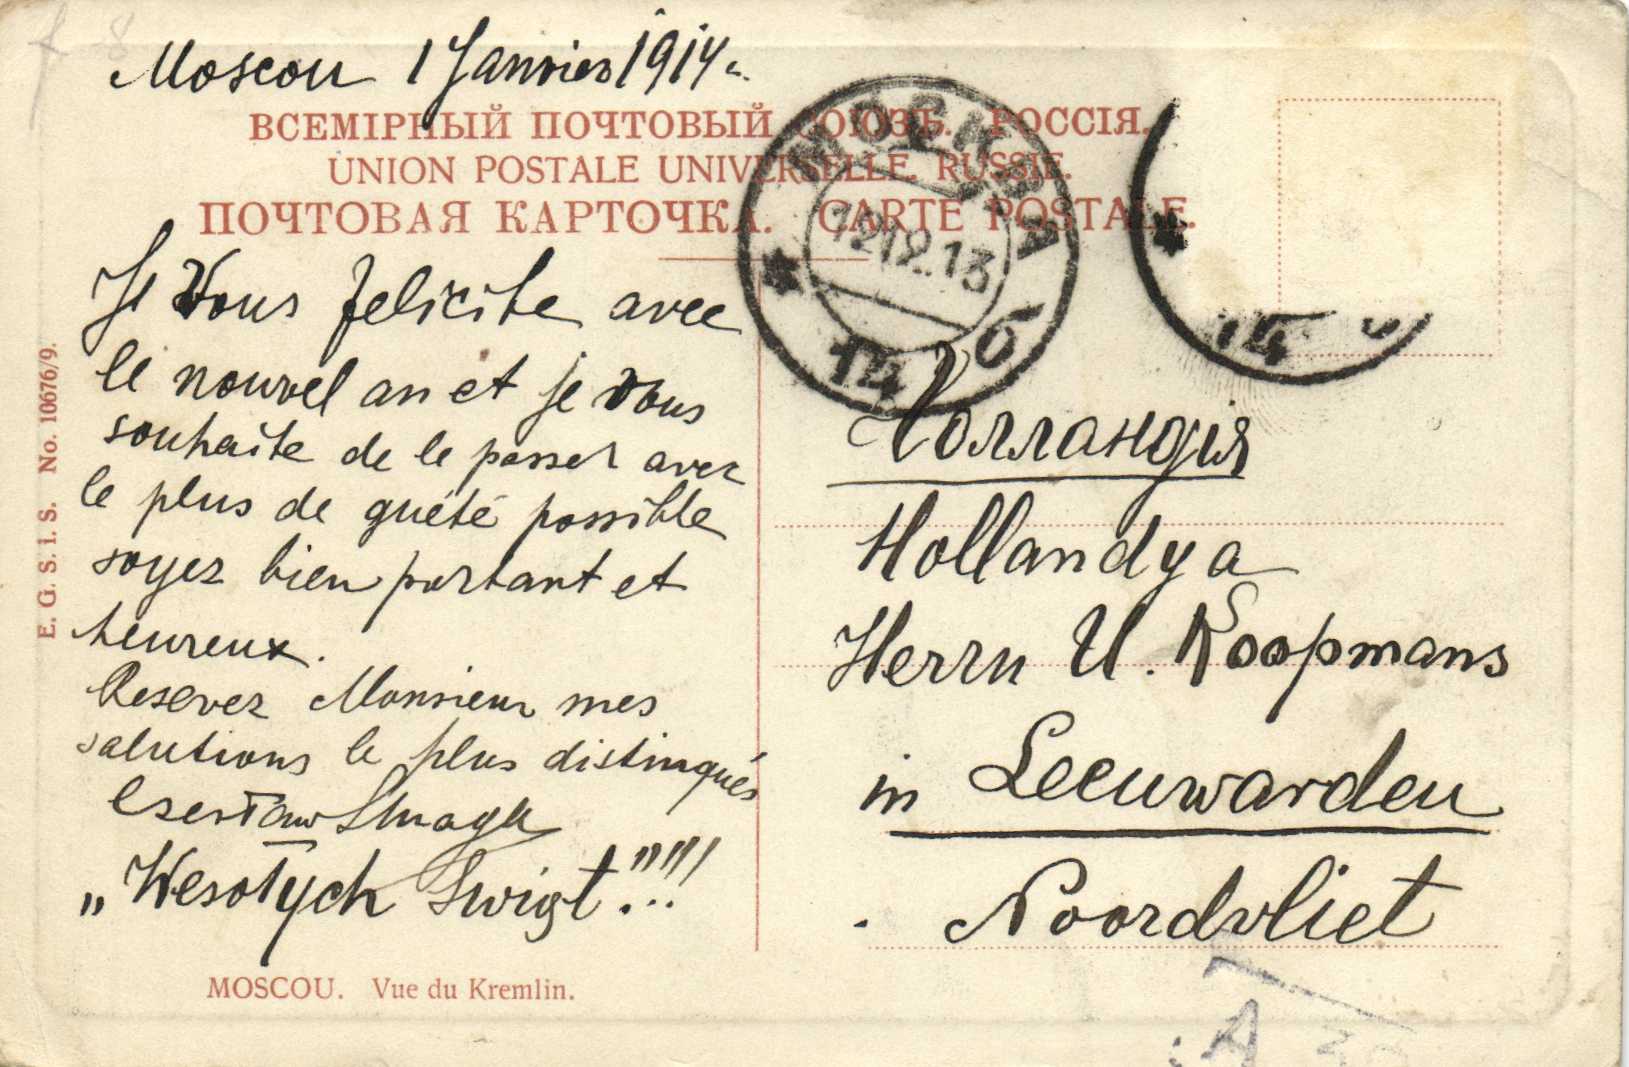 Moscou 1 Janvier 1914 г.
ВСЕМІРНЫЙ ПОЧТОВЫЙ СОЮЗЪ. РОССІЯ.
UNION POSTALE UNIVERSELLE. RUSSIE.
ПОЧТОВАЯ КАРТОЧКА. CARTE POSTALE.
МОСКВА
12.12.13
14 6
14
Je Vous felicite avec
le nouvel an et je vous
souhaite de le passer avec
le plus de guété possible
soyez bien portant et
heureux.
Resevez Monsieur mes
salutions le plus distinqués
Czesław
„Wesołych Swiąt"!!!
E. G. S. I. S. No. 10676/9.
MOSCOU. Vue du Kremlin.
Голландія
Hollandya
Herrn U. Koopmans
in Leeuwarden
Noordvliet
A